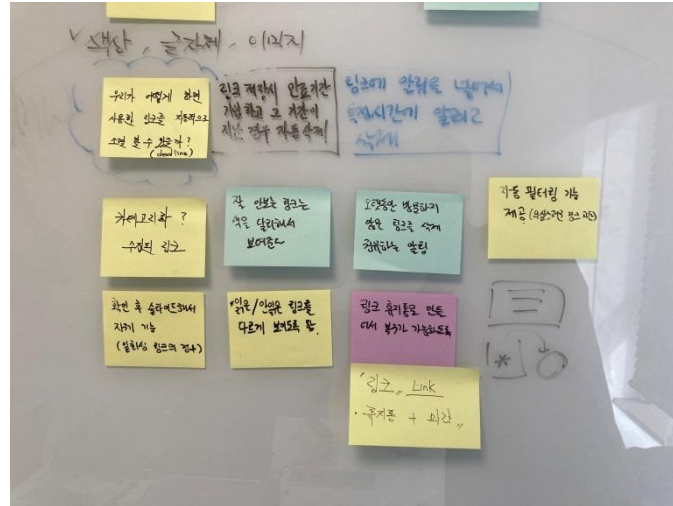 색상, 글자체, 이미지
우리가 어떻게 하면
사용된 링크를 자동적으로
소멸 할 수 있을까?
(deadline)
링크 저장시 만료기간
기입하고 그 기간이
지난 경우 자동삭제
링크에 알림을 넣어서
특정시간에 알리고
삭제
카테고리화?
수집된 링크
잘 안보는 링크는
색을 달리해서
보여준다
오랫동안 방문하지
않은 링크를 삭제
하는 알림
자동 필터링 기능
제공
확인 후 슬라이드해서
삭제 기능
읽은/안읽은 링크를
다르게 보여도록 함.
링크 휴지통을 만들
어서 복구가 가능하도록
"링크" Link
· 휴지통 +
*